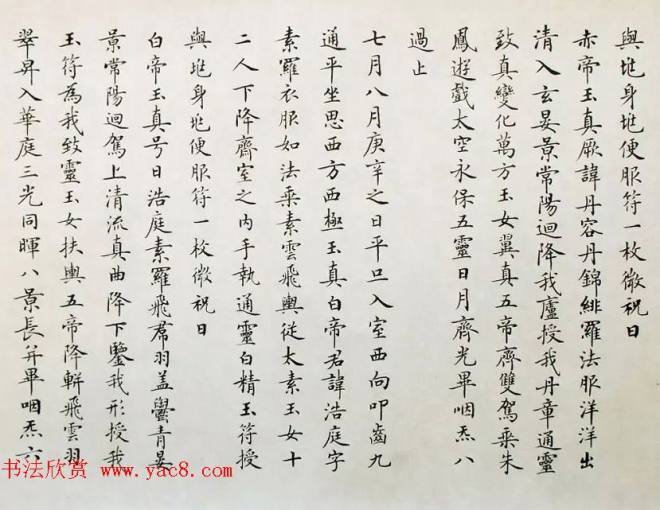 與㘴身㘴便服符一枚微祝曰
赤帝玉真厥諱丹容丹錦緋羅法服洋洋出
清入玄晏景常陽迴降我廬授我丹章通靈
致真變化萬方玉女翼真五帝齊雙駕乘朱
鳳遊戲太空永保五靈日月齊光畢咽炁八
過止
七月八月庚辛之日平旦入室西向叩齒九
通平坐思西方西極玉真白帝君諱浩庭字
素羅衣服如法乘素雲飛輿從太素玉女十
二人下降齊室之内手執通靈白精玉符授
與㘴身㘴便服符一枚微祝曰
白帝玉真号曰浩庭素羅飛帬羽盖鬱青晏
景常陽迴駕上清流真曲降下鑒我形授我
玉符為我致靈玉女扶輿五帝降軿飛雲羽
翠昇入華庭三光同暉八景長并畢咽炁六
书法欣赏 www.yac8.com